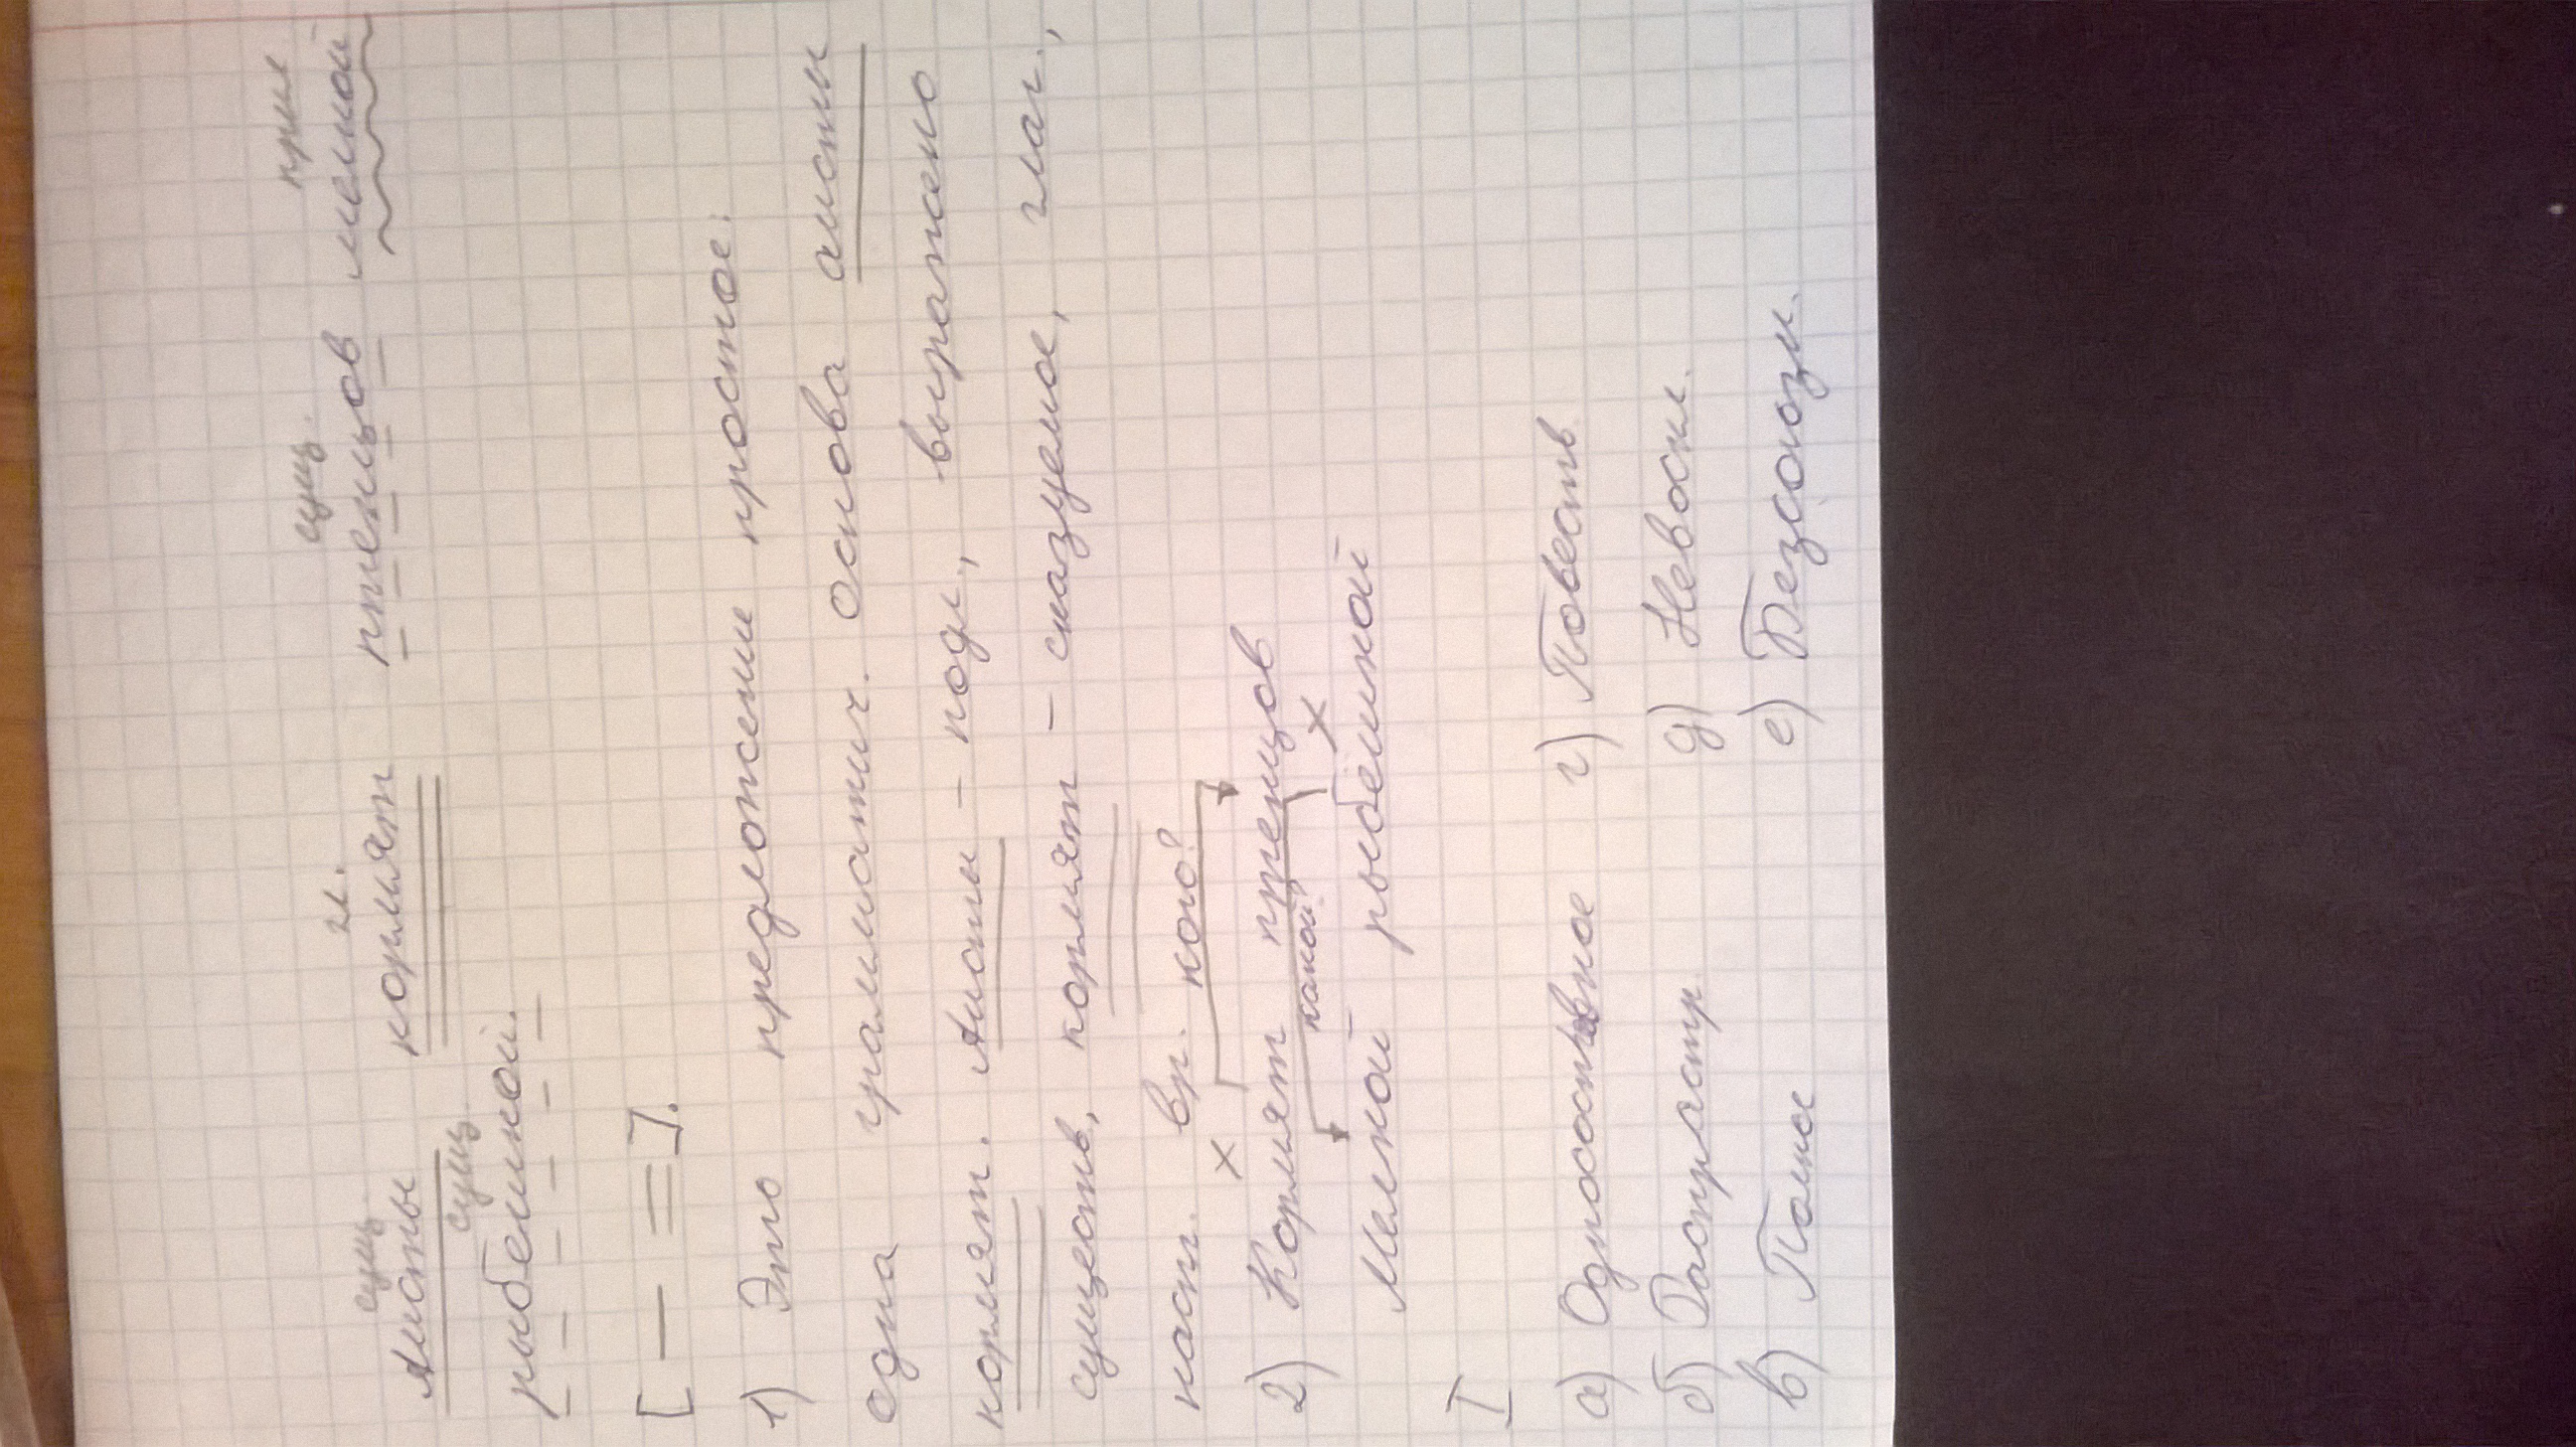 сущ. гл. сущ. прил
Аисты кормят птенцов мелкой
сущ.
рыбёшкой.
[ — = ].
1) Это предложение простое.
одна грамматич. основа аисты
кормят. Аисты – подл, выражено
существ, кормят – сказуемое, глаг.,
наст. вр. кого?
2) Кормят птенцов
какой?
Мелкой рыбёшкой
I
а) Односоставное г) Повеств
б) Распрастр д) Невоскл.
в) Полное е) Безсоюзн.